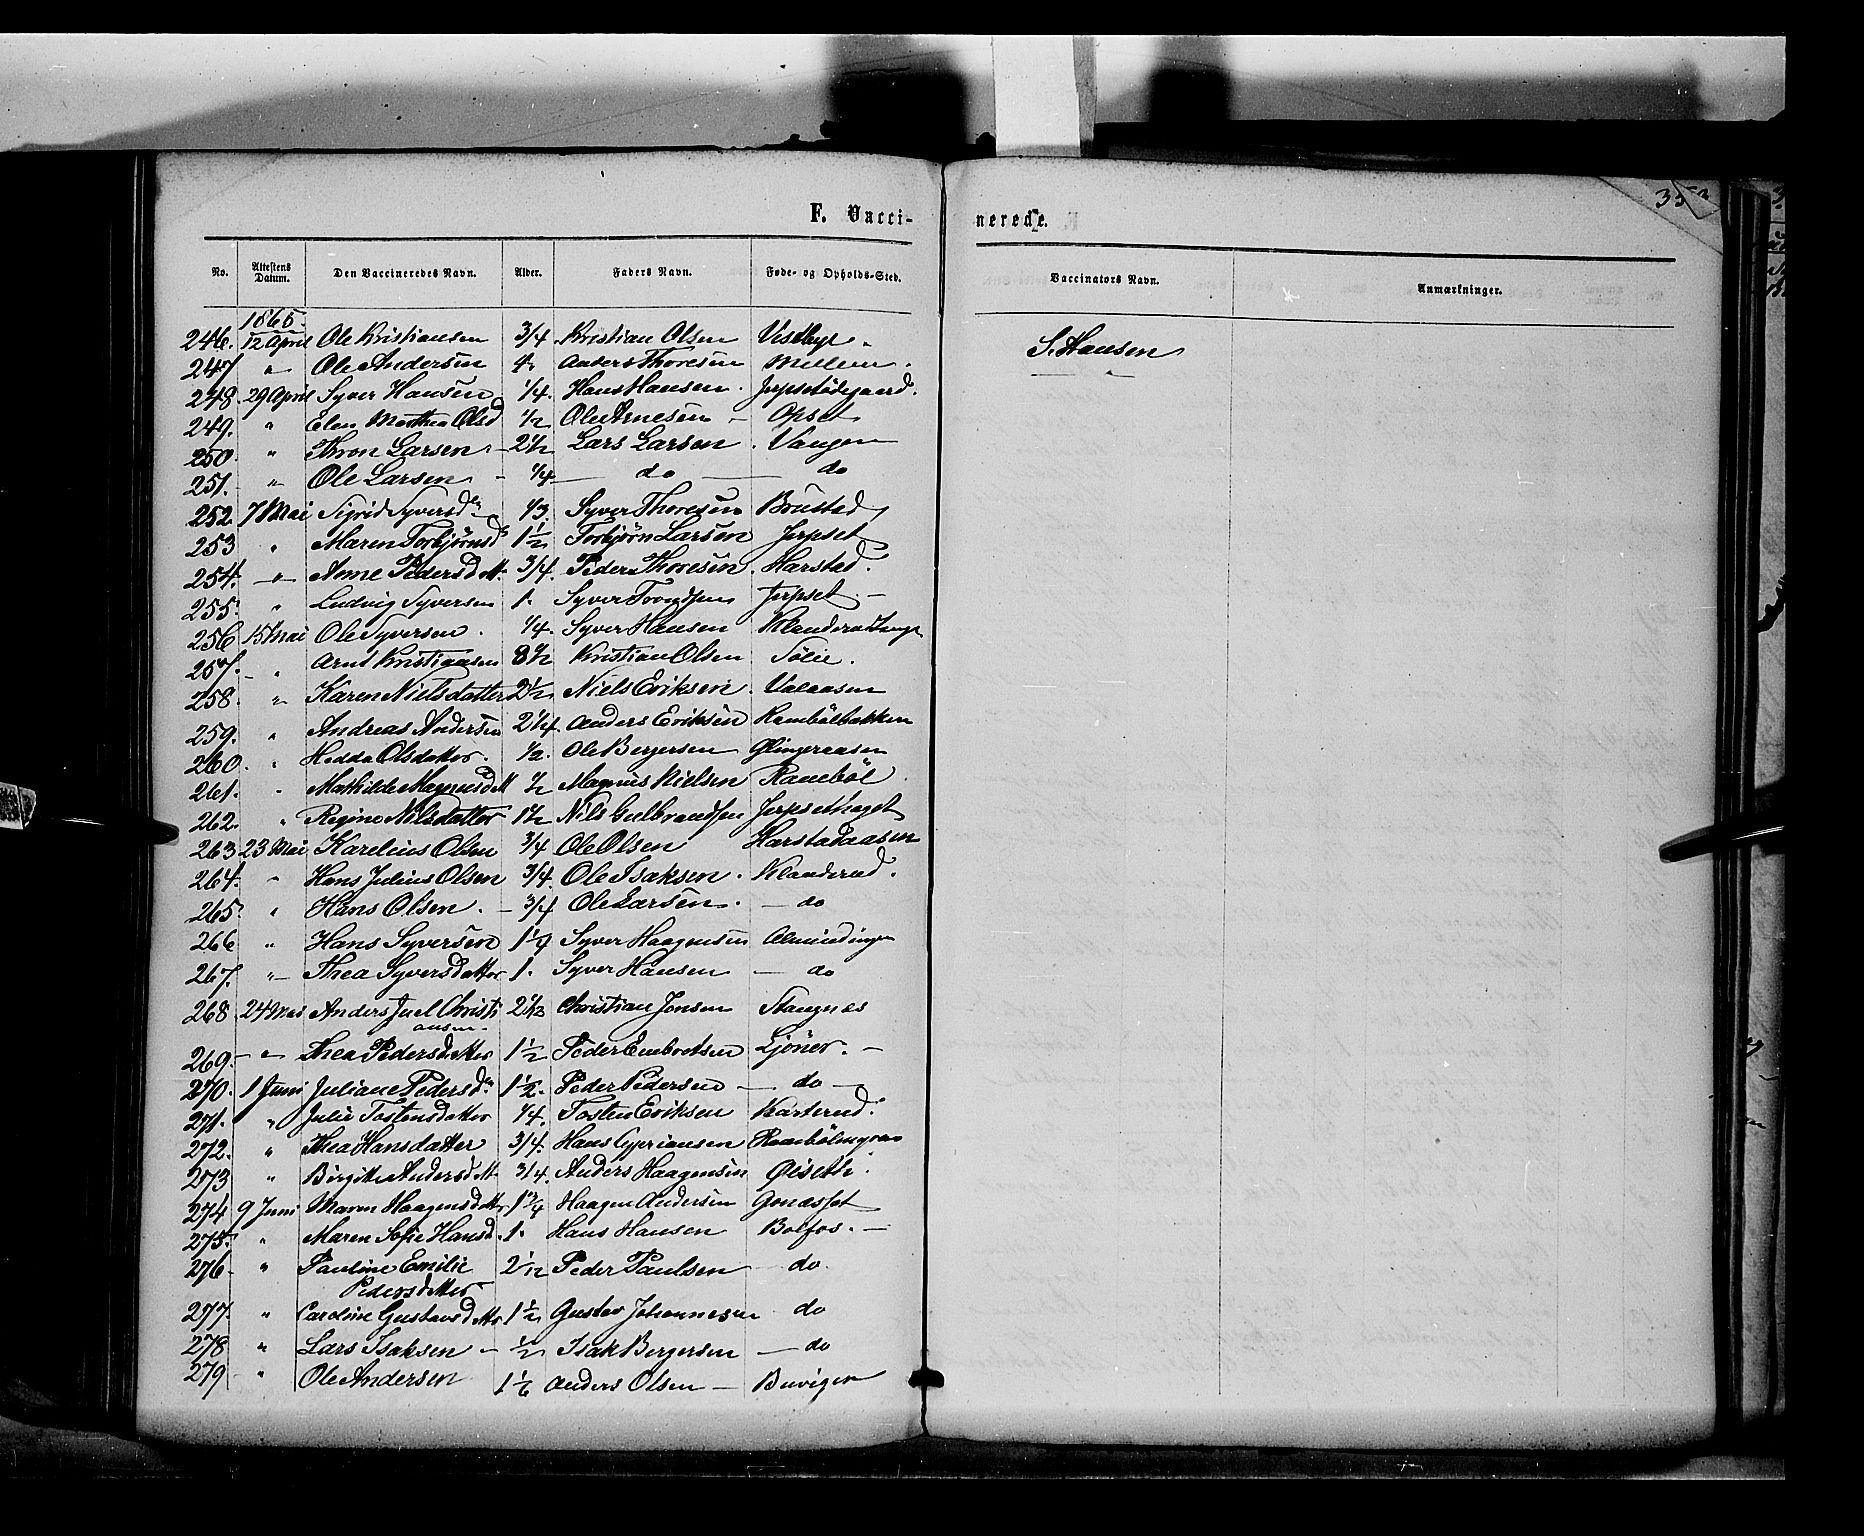 F. Vacci-
nerede.
353
No. Attestens Datum. Den Vaccineredes Navn. Alder. Faders Navn. Føde- og Opholds-Sted. Vaccinators Navn. Anmærkninger.
1865.
246. 12 April Ole Kristiansen 3/4 Kristian Olsen Vestbye. S. Hansen
247 " Ole Andersen Anders Thoresen Mellem.
248. 29 April Syver Hansen 1/4. Hans Hansen. Jerpsetødegaard.
249. " Elen Marthea Olsd 1/2 Ole Arnesen - Opset
250. " Thron Larsen - 2 1/2 Lars Larsen. Vangen
251. " Ole Larsen. - 1/4 do do
252. 7 Mai Sigrid Syversdr 1/3. Syver Thoresen Brustad
253 " Maren Torbjørnsdr 1 1/2 Torbjørn Larsen Jerpset
254. " Anne Pedersdatt. 3/4. Peder Thoresen. Harstad.
255. " Ludvig Syversen 1. Syver Trondsen Jerpset -
256 15 Mai Ole Syversen. 1/4. Syver Hansen Klanderud
257. " Arnt Kristiansen 8 1/2 Kristian Olsen Sølie.
258. " Karen Nielsdatter 2 1/2 Niels Eriksen. Valaasen
259. " Andreas Andersen 2 1/4. Anders Eriksen Rambølbakken
260. " Hedda Olsdatter. 1/2. Ole Bergersen Glingeraasen
261. " Mathilde Magnusdtt 1/2 Magnus Nielsen Rambøl
262. " Regine Nilsdatter 1 1/2 Nils Gulbrandsen Jerpsethaget
263 23 Mai Karelius Olsen 3/4 Ole Olsen Harstadaasen
264. " Hans Julius Olsen 3/4. Ole Isaksen. Klanderud.
265. " Hans Olsen. - 3/4 Ole Larsen. - do
266 " Hans Syversen 1 1/4 Syver Haagensen Almindingen
267. " Thea Syversdatter 1. Syver Hansen - do
268. 24 Mai Anders Juel Christi 2 1/2 Christian Jonsen Stangnes
ansen
269. " Thea Pedersdatter 1 1/2 Peder Embretsen Ljøner. -
270. 1 Juni Juliane Pedersdr 1 1/2. Peder Pedersen - do -
271. " Julie Tostensdatter 1/4. Tosten Eriksen Karterud.
272. " Thea Hansdatter 3/4. Hans Cypriansen Rambølmyren
273 " Birgitte Andersdtt. 3/4. Anders Haagensen Øiseth.
274 9 Juni Maren Haagensdatter 1 3/4 Haagen Andersen Gonasset
275. " Maren Sofie Hansd. 1. Hans Hansen Bolfos. -
276 " Pauline Emilie 2 1/12 Peder Paulsen do.
Pedersdatter
277. " Caroline Gustavsdatter 1 1/2 Gustav Johannesen do
278 " Lars Isaksen - 1/2 Isak Bergersen - do
279 " Ole Andersen 1 1/6 Anders Olsen - Buviger